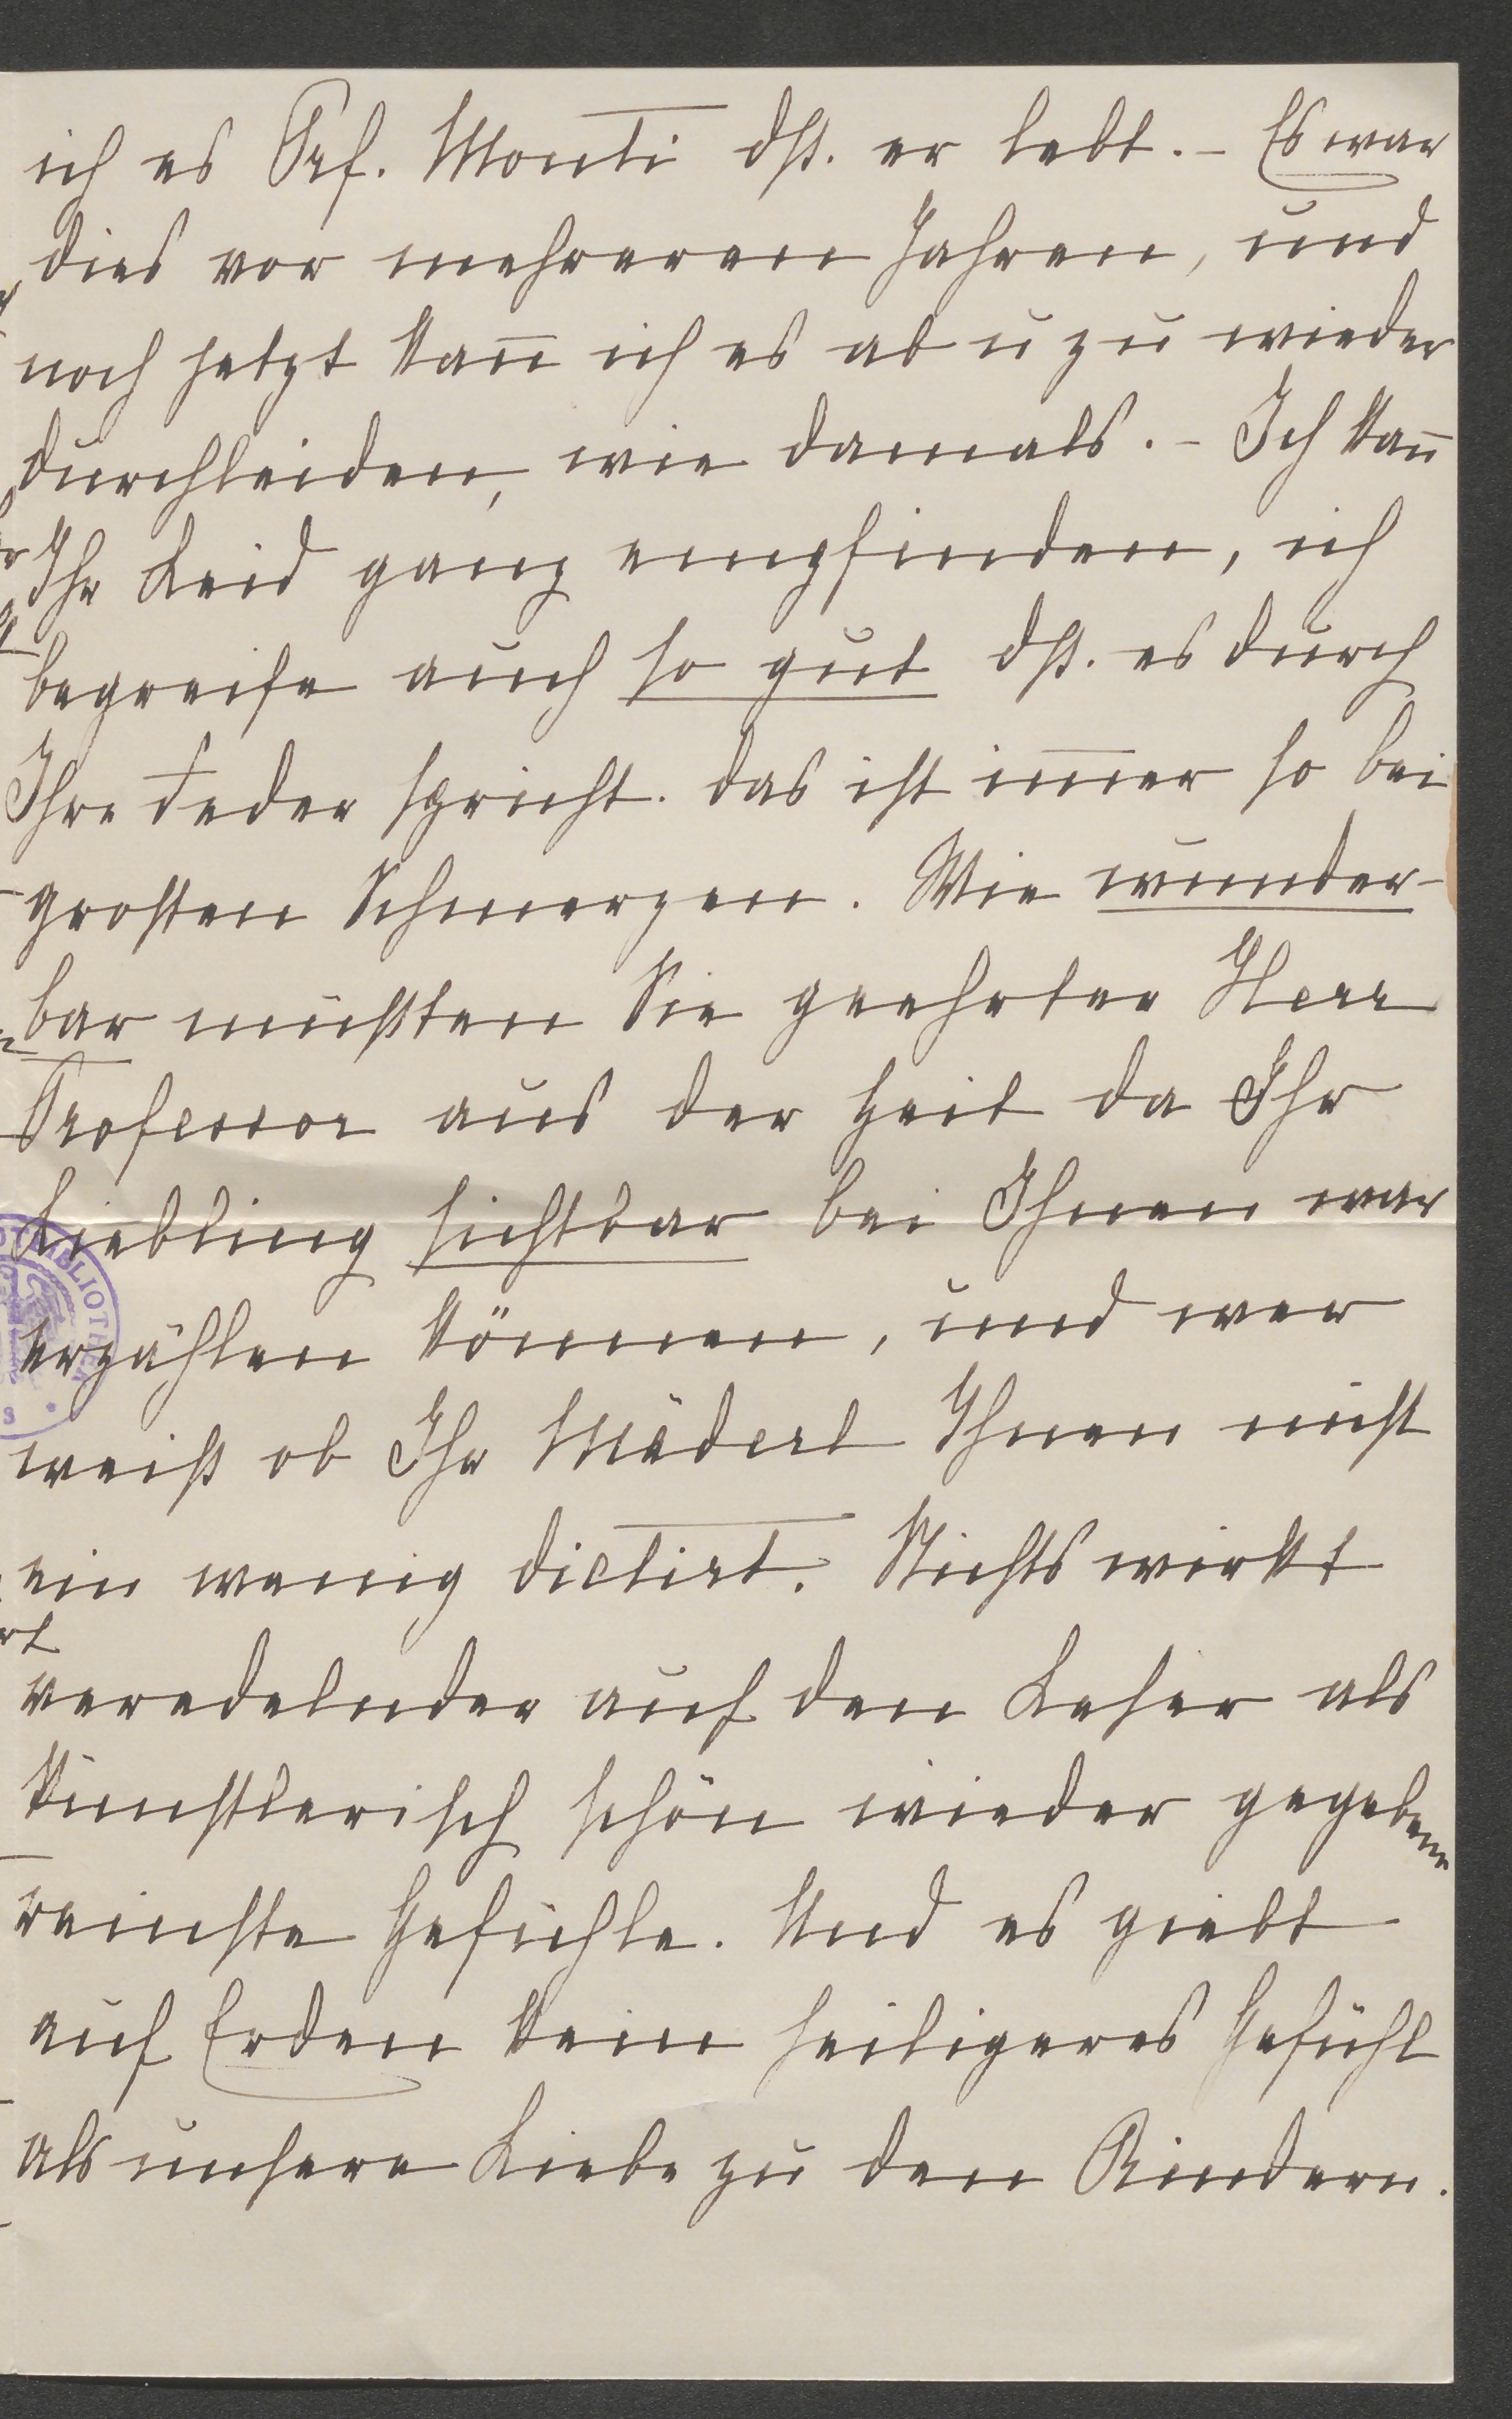 ich es Prf. Monti dß. er lebt. – Es war
dies vor mehreren Jahren, und
noch jetzt kan̄ ich es ab u zu wieder
durchleiden, wie damals. – Ich kan̄
Ihr Leid ganz empfinden, ich
begreife auch so gut dß. es durch
Ihre Feder spricht. das ist im̄er so bei
großen Schmerzen. Wie wunder-
bar müßten Sie geehrter Herr
Professor aus der Zeit da Ihr
Liebling sichtbar bei Ihnen war
erzählen können, und wer
weiß ob Ihr Mäderl Ihnen nicht
ein wenig dictirt. Nichts wirkt
veredelnder auf den Leser als
künstlerisch schön wieder gegebene
reinste Gefühle. Und es giebt
auf Erden kein heiligeres Gefühl
als unsere Liebe zu den Kindern.